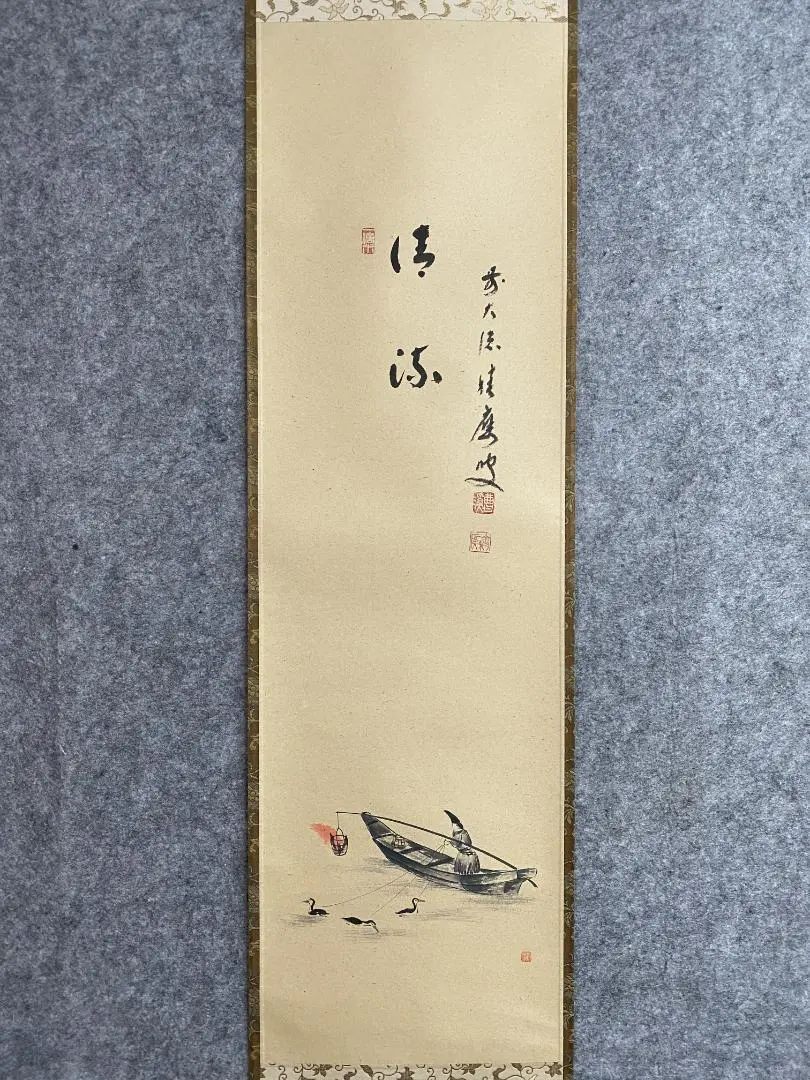 清流
前大徳積應叟